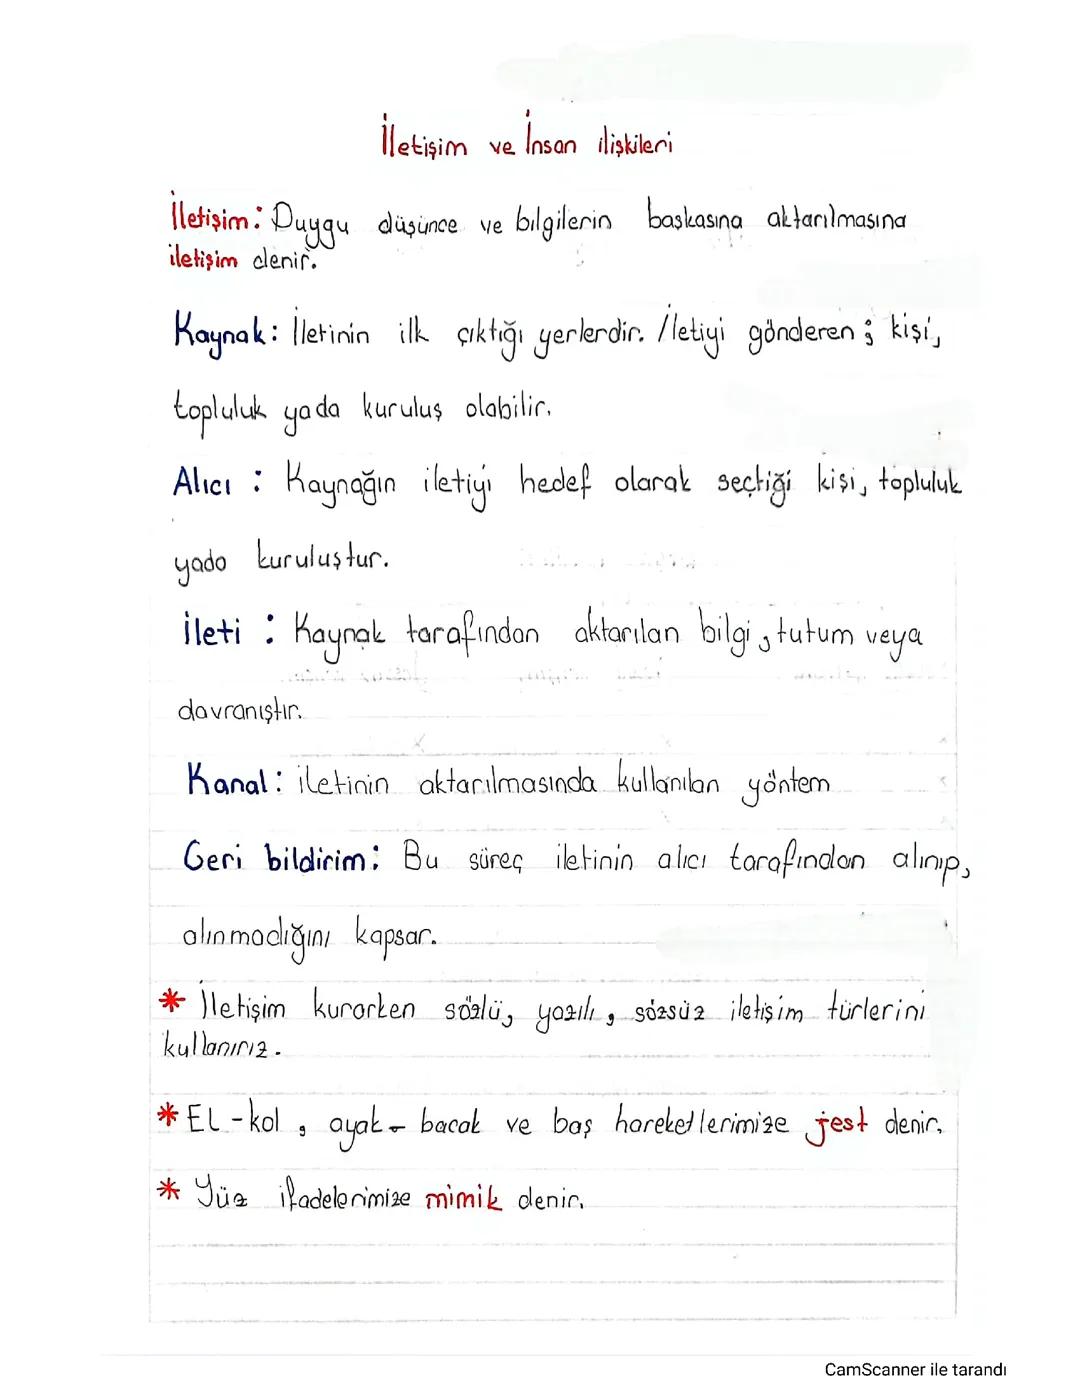 İletişim ve İnsan ilişkileri
İletişim: Duygu düşünce ve bilgilerin başkasına aktarılmasına
iletişim denir.
Kaynak: İletinin ilk çıktığı yerlerdir. İletiyi gönderen ; kişi,
topluluk yada kuruluş olabilir.
Alıcı : Kaynağın iletiyi hedef olarak seçtiği kişi, topluluk
yada kuruluştur.
İleti : Kaynak tarafından aktarılan bilgi, tutum veya
davranıştır.
Kanal: iletinin aktarılmasında kullanılan yöntem
Geri bildirim: Bu süreç iletinin alıcı tarafından alınıp,
alınmadığını kapsar.
* İletişim kurarken sözlü, yazılı, sözsüz iletişim türlerini
kullanırız.
* El-kol, ayak-bacak ve baş hareketlerimize jest denir.
* Yüz ifadelerimize mimik denir.
CamScanner ile tarandı